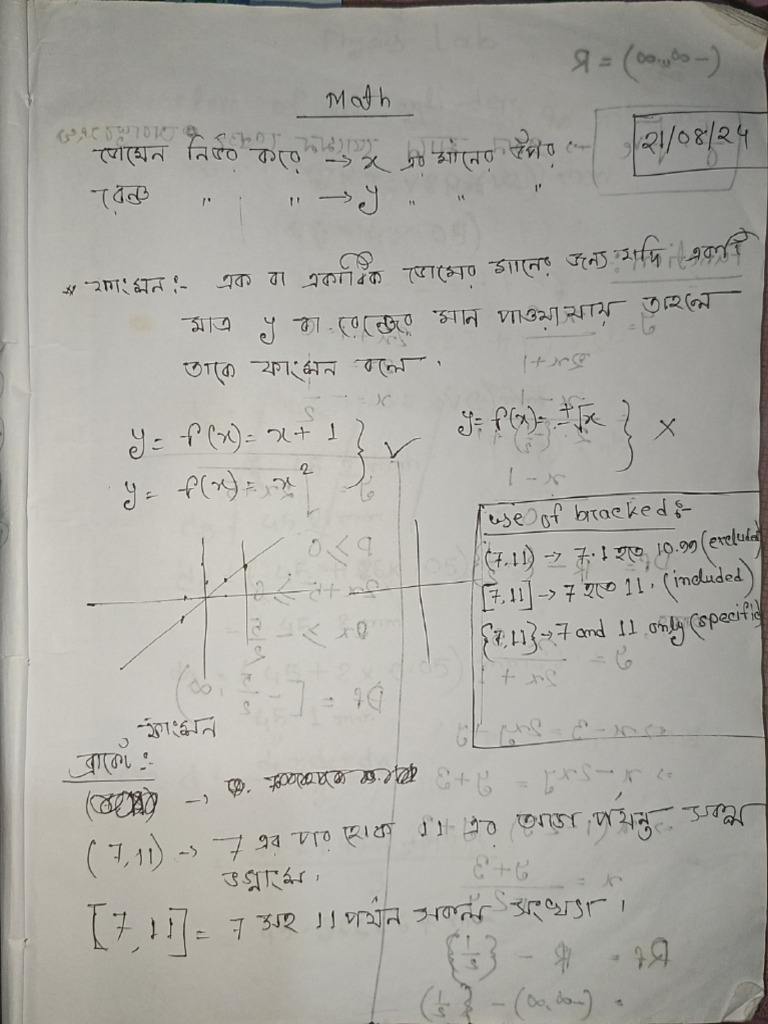 Math
21/08/24
ডোমেন নির্ভর করে → x এর মানের উপর
রেন্জ " " → y " " "
* ফাংশন :- এক বা একাধিক ডোমের মানের জন্য যদি একটি
মাত্র y বা রেন্জের মান পাওয়া যায় তাহলে
তাকে ফাংশন বলে .
y = f(x) = x + 1
y = f(x) = x² } ✓
y = f(x) = ±√x } ×
use of bracked :-
(7,11) → 7.1 হতে 10.99 (exclude
[7,11] → 7 হতে 11. (included)
{7,11} → 7 and 11 only (specific
ফাংশন
ব্রাকেট :-
(7,11) → 7 এর পর থেকে 11 এর আগে পর্যন্ত সকল
ভগ্নাংশ .
[7,11] = 7 11 পর্যন্ত সকল সংখ্যা ।